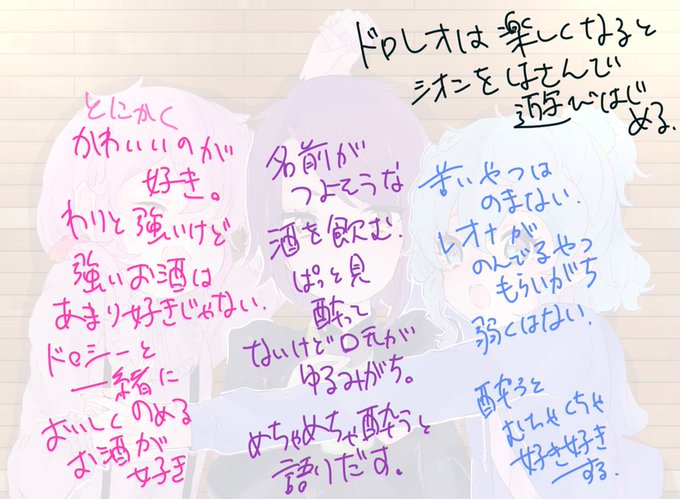 ドロレオは楽しくなると
シオンをはさんで
遊びはじ
める.
とにかく
かわいいのが
好き。
わりと強いけど
強いお酒は
あまり好きじゃない.
ドロシーと
一緒に
おいしくのめる
お酒が
好き
名前が
つよそうな
酒を飲む.
ぱっと見
酔って
ないけど口元が
ゆるみがち。
めちゃめちゃ酔うと
語りだす。
苦いやつは
のまない.
レオナが
のんでるやつ
もらいがち
弱くはない.
酔うと
むちゃくちゃ
好き好き
する.